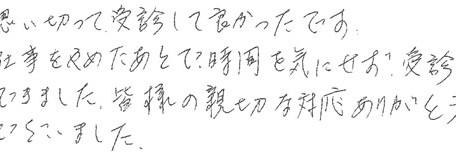 思い切って、受診して良かったです。
仕事をやめたあとで、時間を気にせず、受診
できました。皆様の親切な対応ありがとう
ございました。